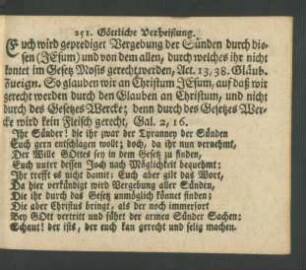 251. Göttliche Verheissung.
Euch wird geprediget Vergebung der Sünden durch die-
sen (JEsum) und von dem allen, durch welches ihr nicht
kontet im Gesetz Mosis gerecht werden, Act. 13, 38. Gläub.
Zueign. So glauben wir an Christum JEsum, auf daß wir
gerecht werden durch den Glauben an Christum, und nicht
durch des Gesetzes Wercke; denn durch des Gesetzes Wer-
cke wird kein Fleisch gerecht, Gal. 2, 16.
Ihr Sünder! die ihr zwar der Tyranney der Sünden
Euch gern entschlagen wollt; doch, da ihr nun vernehmt,
Der Wille GOttes sey in dem Gesetz zu finden,
Euch unter dessen Joch nach Möglichkeit bequehmt:
Ihr trefft es nicht damit; Euch aber gilt das Wort,
Da hier verkündigt wird Vergebung aller Sünden,
Die ihr durch das Gesetz unmöglich könnet finden;
Die aber Christus bringt, als der noch immerfort
Bey GOtt vertritt und führt der armen Sünder Sachen;
Schaut! der ists, der euch kan gerecht und selig machen.